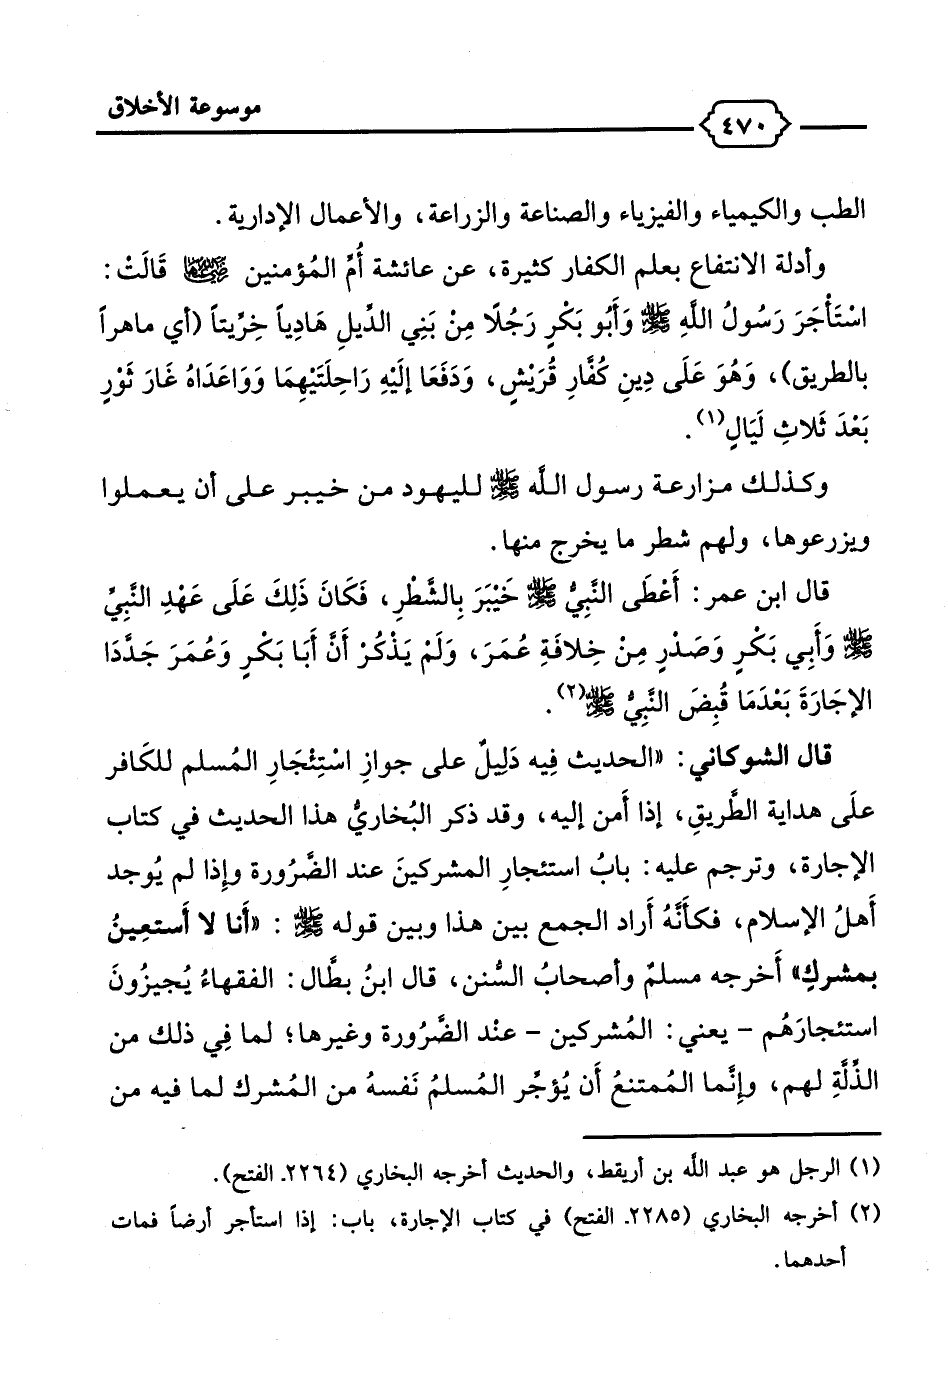 موسوعة الأخلاق
٤٧٠
الطب والكيمياء والفيزياء والصناعة والزراعة، والأعمال الإدارية.
وأدلة الانتفاع بعلم الكفار كثيرة، عن عائشة أُمِّ المُؤمنين رضي الله عنها قَالَتْ:
اسْتَأْجَرَ رَسُولُ اللَّهِ ﷺ وَأَبُو بَكْرٍ رَجُلًا مِنْ بَنِي الدِّيلِ هَادِياً خِرِّيتاً (أي ماهراً
بالطريق)، وَهُوَ عَلَى دِينِ كُفَّارِ قُرَيْشٍ، وَدَفَعَا إلَيْهِ رَاحِلَتَيْهِمَا وَوَاعَدَاهُ غَارَ ثَوْرٍ
بَعْدَ ثَلاثِ لَيَالٍ(١).
وكذلك مزارعة رسول اللَّه ﷺ لليهود من خيبر على أن يعملوا
ويزرعوها، ولهم شطر ما يخرج منها.
قال ابن عمر: أَعْطَى النَّبِيُّ ﷺ خَيْبَرَ بِالشَّطْرِ، فَكَانَ ذَلِكَ عَلَى عَهْدِ النَّبِيِّ
ﷺ وَأَبِي بَكْرٍ وَصَدْرٍ مِنْ خِلافَةِ عُمَرَ، وَلَمْ يَذْكُرْ أَنَّ أَبَا بَكْرٍ وَعُمَرَ جَدَّدَا
الإجَارَةَ بَعْدَمَا قُبِضَ النَّبِيُّ ﷺ(٢).
قال الشوكاني: «الحديث فِيه دَلِيلٌ على جوازِ اسْتِئْجَارِ المُسلم للكَافر
علَى هداية الطَّريقِ، إذا أَمن إليه، وقد ذكر البُخاريُّ هذا الحديث في كتاب
الإجارة، وترجم عليه: بابُ استئجارِ المشركينَ عند الضَّرُورة وإذا لم يُوجد
أَهلُ الإسلام، فكأنَّهُ أَراد الجمع بين هذا وبين قوله ﷺ: «أَنا لا أَستعِينُ
بمشركٍ» أَخرجه مسلمٌ وأصحابُ السُّنن، قال ابنُ بطَّال: الفقهاءُ يُجيزُونَ
استئجارَهُم - يعني: المُشركين - عنْد الضَّرُورة وغيرها؛ لما فِي ذلك من
الذِّلَّةِ لهم، وإنَّما المُمتنعُ أَن يُؤجِّر المُسلمُ نَفسهُ من المُشرك لما فيه من
(١) الرجل هو عبد اللَّه بن أريقط، والحديث أخرجه البخاري (٢٢٦٤ـ الفتح).
(٢) أخرجه البخاري (٢٢٨٥ـ الفتح) في كتاب الإجارة، باب: إذا استأجر أرضاً فمات
أحدهما.